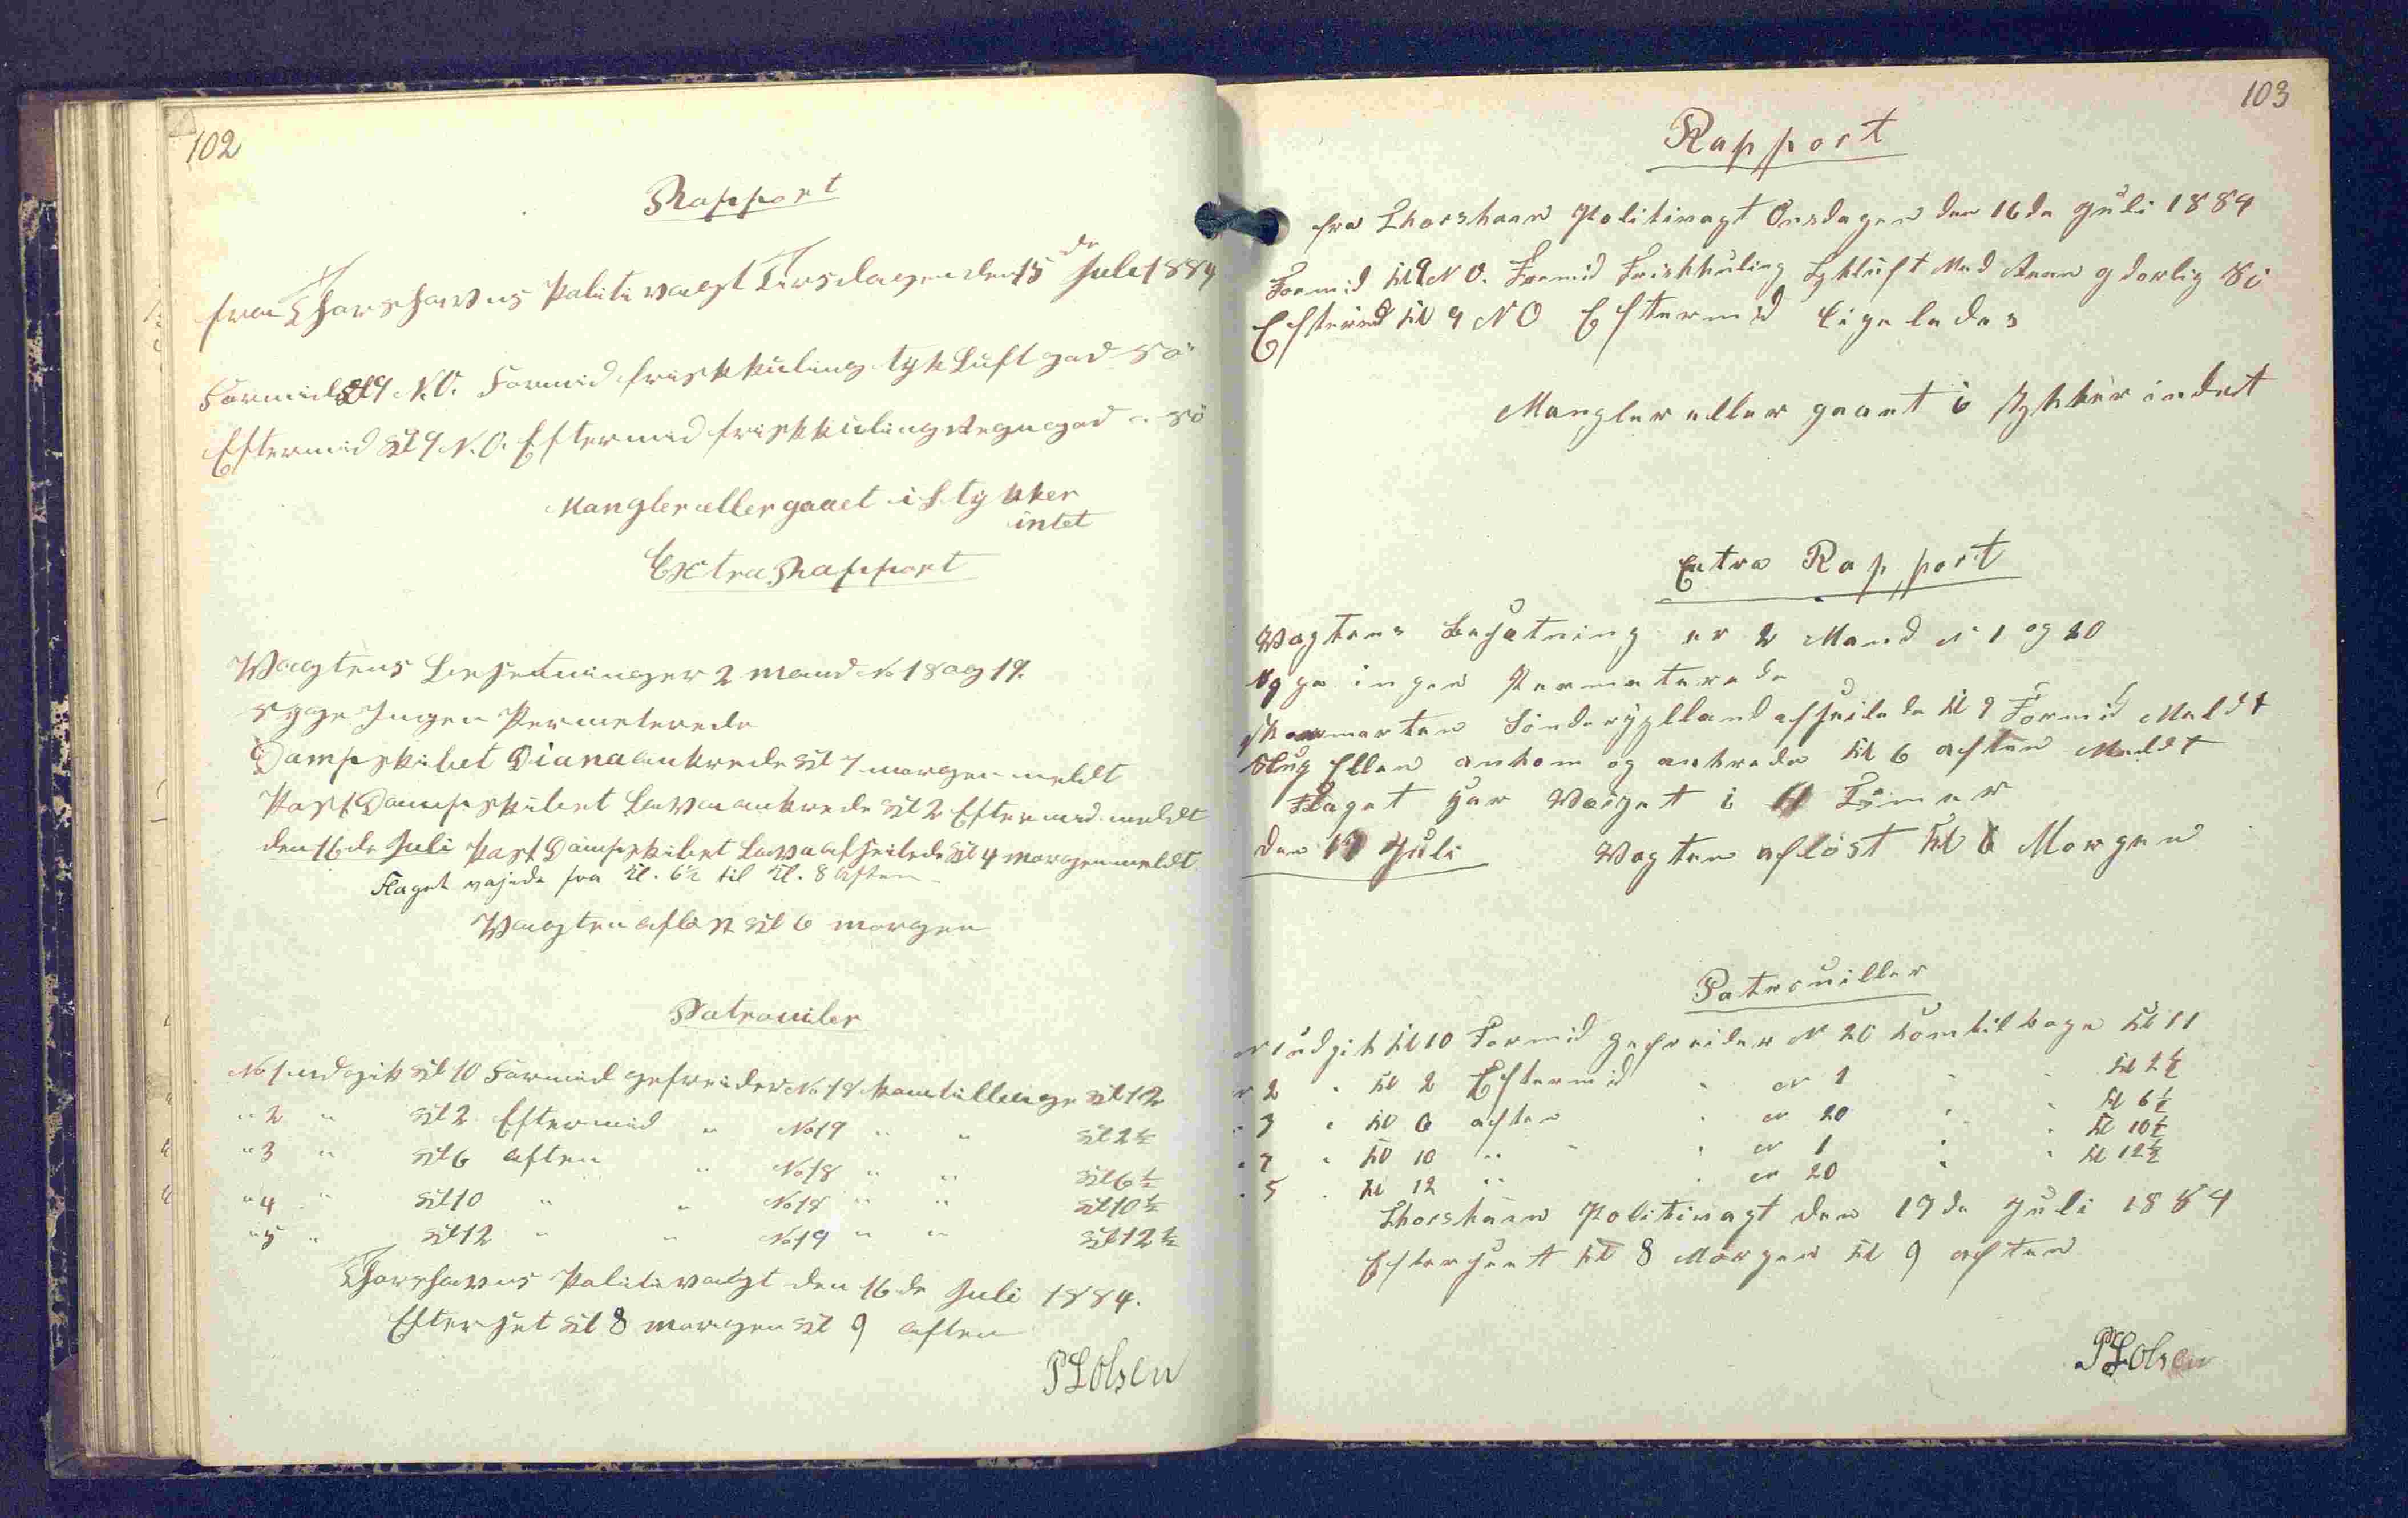 102
Rapport
fra Thorshavns Politivagt Tirsdagen den 15de Juli 1884
Formid Kl 9 N.O. Formid frisk kuling tyk Luft god Sö
Eftermid Kl 9 N.O. Eftermid frisk kuling Regn god " Sö
Mangler eller gaaet i Stykker
intet
Extra Rapport
Wagtens Besetning er 2 mand No 18 og 19.
Syge Ingen Permeterede
Dampskibet Diana ankrede Kl 7 morgen meldt
Post Dampskibet Lavra ankrede Kl 2 Eftermid meldt
den 16de Juli Post Dampskibet Lavra afseilede Kl 4 morgen meldt
Flaget vajede fra Kl. 6½ til Kl. 8 Aften
Wagten aflöst Kl 6 morgen
Patrouiler
No 1 udgik Kl 10 Formid gefreider No 18 kom tilbage Kl 12
" 2 " Kl 2 Eftermid " No 19 " " Kl 2½
" 3 " Kl 6 aften " No 18 " " Kl 6½
" 4 " Kl 10 " " No 18 " " Kl 10½
" 5 " Kl 12 " " No 19 " " Kl 12½
Thorshavns Politivagt den 16de Juli 1884.
Efterset Kl 8 morgen Kl 9 aften
PLOlsen
103
Rapport
fra Thorshavn Politivagt Onsdagen den 16de Juli 1884
Formid Kl 9 N O. Formid Friskkuling Tykluft Med Ræn og dorlig Sö
Eftermd Kl 9 N O Eftermid Ligeledes
Mangler eller gaaet i stykker indet
Extra Rapport
Wagtens Besætning er 2 Mand No 1 og 20
Syge ingen Permeterede
Skonnerten Sönderjylland afseilede Kl 9 Formid Meldt
Slup Ellen ankom og ankrede Kl 6 aften Meldt
Flaget har Vaiget i 11 Timer
den 17 Juli Wagten aflöst Kl 6 Morgen
Patrouiller
No 1 udgik Kl 10 Formid gefreider No 20 kom tilbage Kl 11
No 2 " Kl 2 Eftermid " No 1 " " Kl 2½
" 3 " Kl 6 aften " No 20 " " Kl 6½
" 4 " Kl 10 " " " No 1 " " Kl 10½
" 5 " Kl 12 " " No 20 " " Kl 12½
Thorshavn Politivagt den 17de Juli 1884
Efterseet Kl 8 Morgen Kl 9 aften
PLOlsen